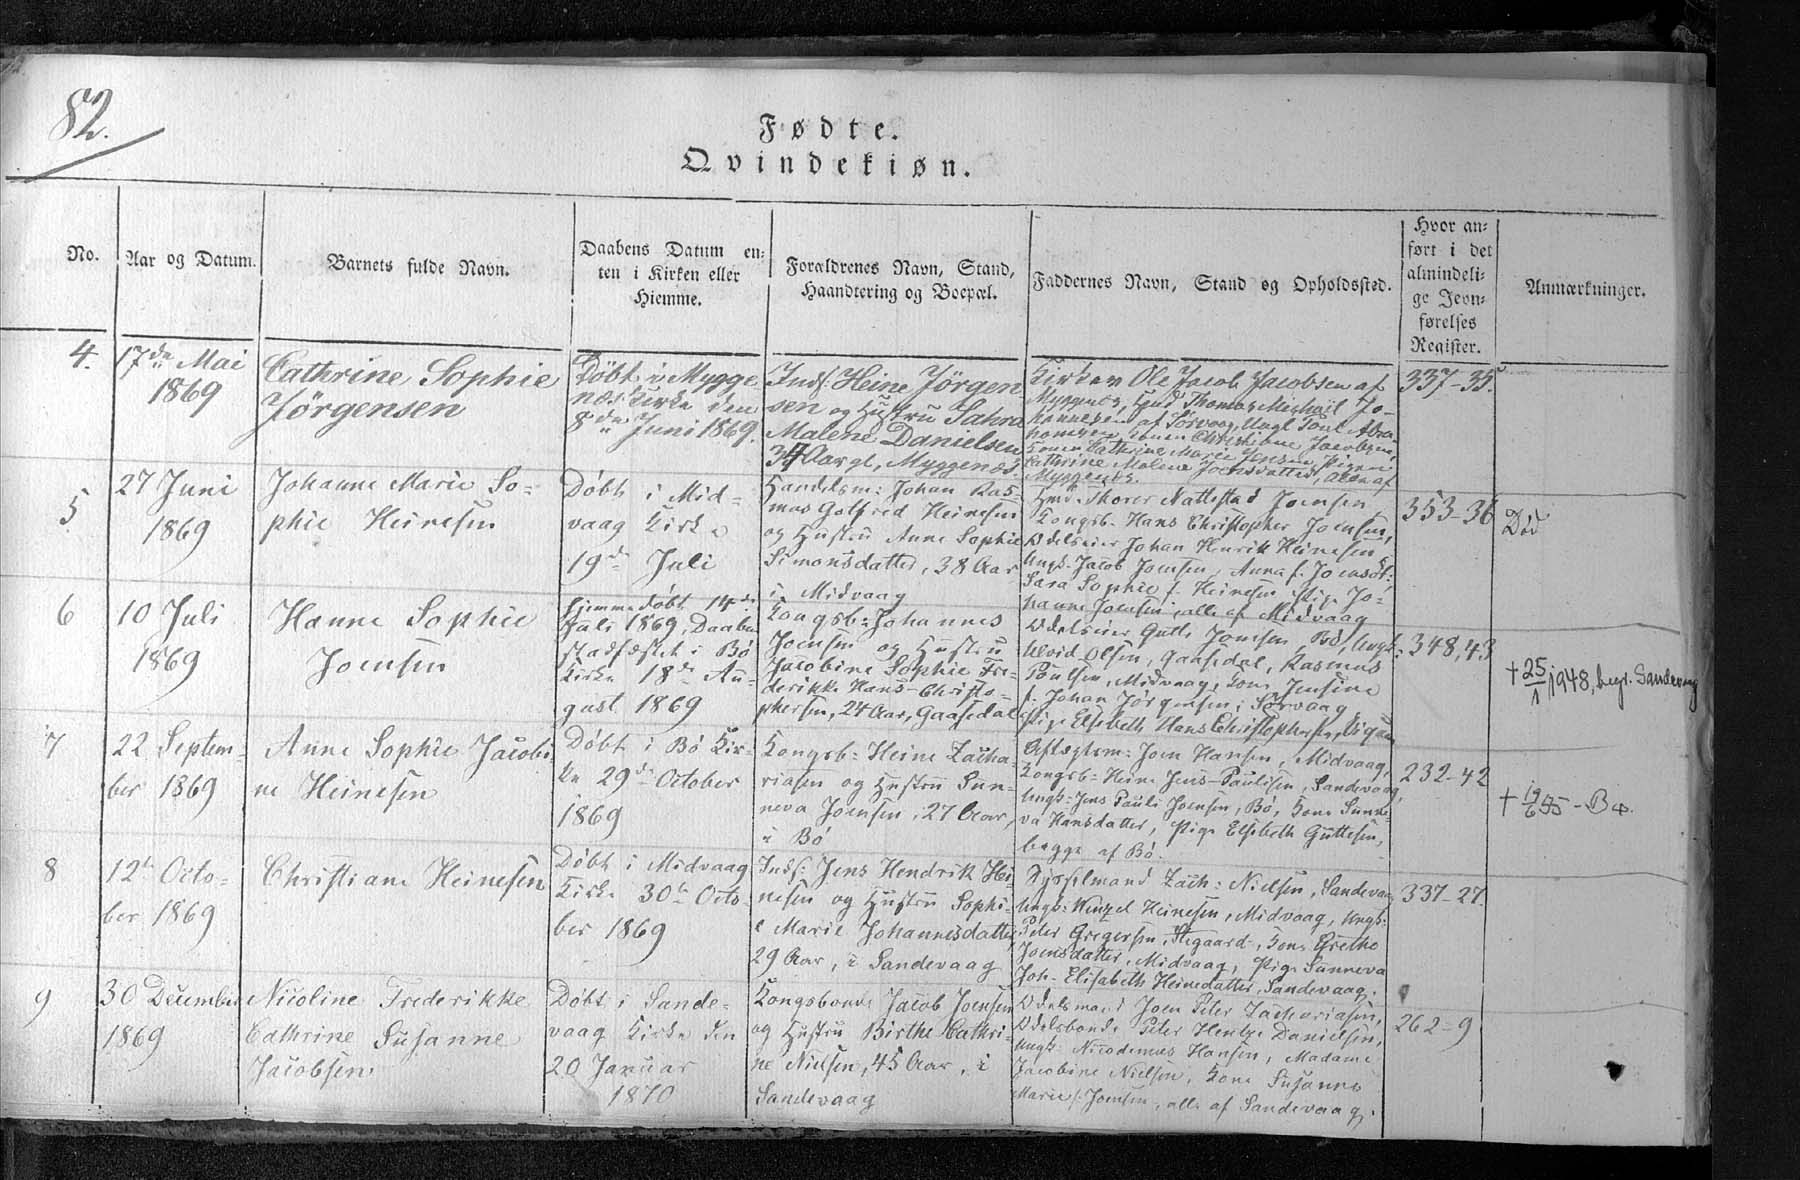 82.
Fødte.
Qvindekiøn.
No.
Aar og Datum.
Barnets fulde Navn.
Daabens Datum en-
ten i Kirken eller
Hiemme.
Forældrenes Navn, Stand,
Haandtering og Boepæl.
Faddernes Navn, Stand og Opholdssted.
Hvor an-
ført i det
almindeli-
ge Jevn-
førelses
Register.
Anmærkninger.
4.
17de Mai
1869
Cathrine Sophie
Jörgensen
Döbt i Mygge
næs Kirke den
8de Juni 1869.
Inds. Heine Jörgen
sen og Hustru Sahra
Malene Danielsen
37 Aar gl., Myggenæs
Kirkev Ole Jacob Jacobsen af
Myggenæs, Thomas Michail Jo-
hannesen af Sørvaag, Ungk Poul Abra
hamsen, Konen Christiane Jacobsen,
Konen Cathrine Marie Jensen, Pigen
Cathrine Malene Joensdatter, alle af
Myggenæs.
337-35.
5
27 Juni
1869
Johanne Marie So-
phie Heinesen
Døbt i Mid-
vaag Kirke
19de Juli
Handelsm: Johan Ras-
mus Gotfred Heinesen
og Hustru Anne Sophie
Simonsdatter, 38 Aar
i Midvaag
Thorer Nattestad Joensen
Kongsb. Hans Christopher Joensen,
Odelseier Johan Henrik Heinesen,
Ungk. Jacob Joensen, Anna f. Joensdt:
Sara Sophie f. Heinesen, Pige Jo-
hanne Joensen, alle af Midvaag
353-36
Død
6
10 Juli
1869
Hanne Sophie
Joensen
Hjemmedøbt 14de
Juli 1869, Daaben
stadfæstet i Bø
Kirke 18de Au-
gust 1869
Kongsb: Johannes
Joensen og Hustru
Jacobine Sophie Fre-
derikke Hans-Christo-
phersen, 24 Aar, Gaasedal
Odelseier Gutti Joensen, Bø, Ungk:
Olsen, Gaasedal, Rasmus
Poulsen, Midvaag, Kone Jensine
f. Johan Jørgensen, Sørvaag,
Pige Elsebeth Hans Christophersen,
348,43
† 25/1 1948, begr. Sandevaag
7
22 Septem-
ber 1869
Anne Sophie Jacobi
ne Heinesen
Døbt i Bø Kir-
ke 29de October
1869
Kongsb: Heine Zacha-
riasen og Hustru Sun-
neva Joensen, 27 Aar,
i Bø
Aftægtsm: Joen Hansen, Midvaag,
Kongsb: Heine Jens-Paulisen, Sandevaag,
Ungk: Jens Pauli Joensen, Bø, Kone Sunne-
va Hansdatter, Pige Elsebeth Guttesen,
begge af Bø.
232-42
† 19/6 55 - Bø.
8
12te Octo-
ber 1869
Christiane Heinesen
Døbt i Midvaag
Kirke 30te Octo-
ber 1869
Inds: Jens Hendrik Hei-
nesen og Hustru Sophi-
e Marie Johannesdatter,
29 Aar, i Sandevaag
Sysselmand Zach: Nielsen, Sandevaag
Ungk: Wenzel Heinesen, Midvaag, Ungk:
Peter Gregersen, Stegaard, Kone Grethe
Joensdatter, Midvaag, Pige Sunneva
Joh. Elisabeth Heinedatter, Sandevaag.
337-27.
9
30 December
1869
Nicoline Frederikke
Cathrine Susanne
Jacobsen
Døbt i Sande-
vaag Kirke den
20 Januar
1870
Kongsbonde Jacob Joensen
og Hustru Birthe Cathri-
ne Nielsen, 45 Aar, i
Sandevaag
Odelsmand Joen Peter Zachariasen,
Odelsbonde Peter Hentze Danielsen,
Ungk: Nicodemus Hansen, Madame
Jacobine Nielsen, Kone Susanne
Marie f. Joensen, alle af Sandevaag.
262-9